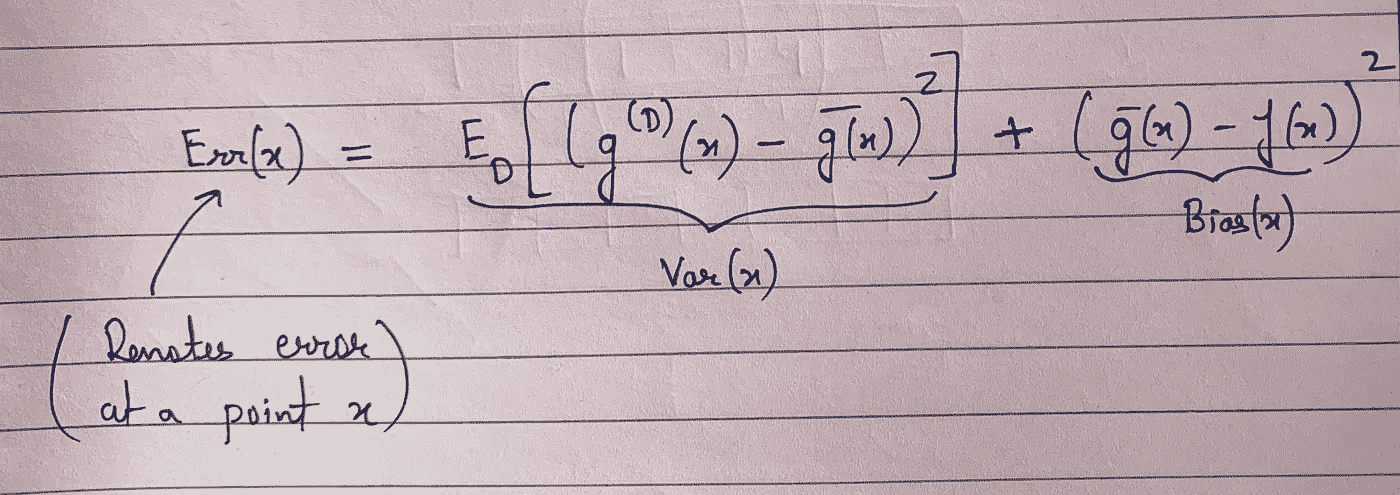 Err(x) = E_D[(g^(D)(x) - ḡ(x))^2] + (ḡ(x) - f(x))^2
Var(x)
Bias(x)
(Denotes error
at a point x)